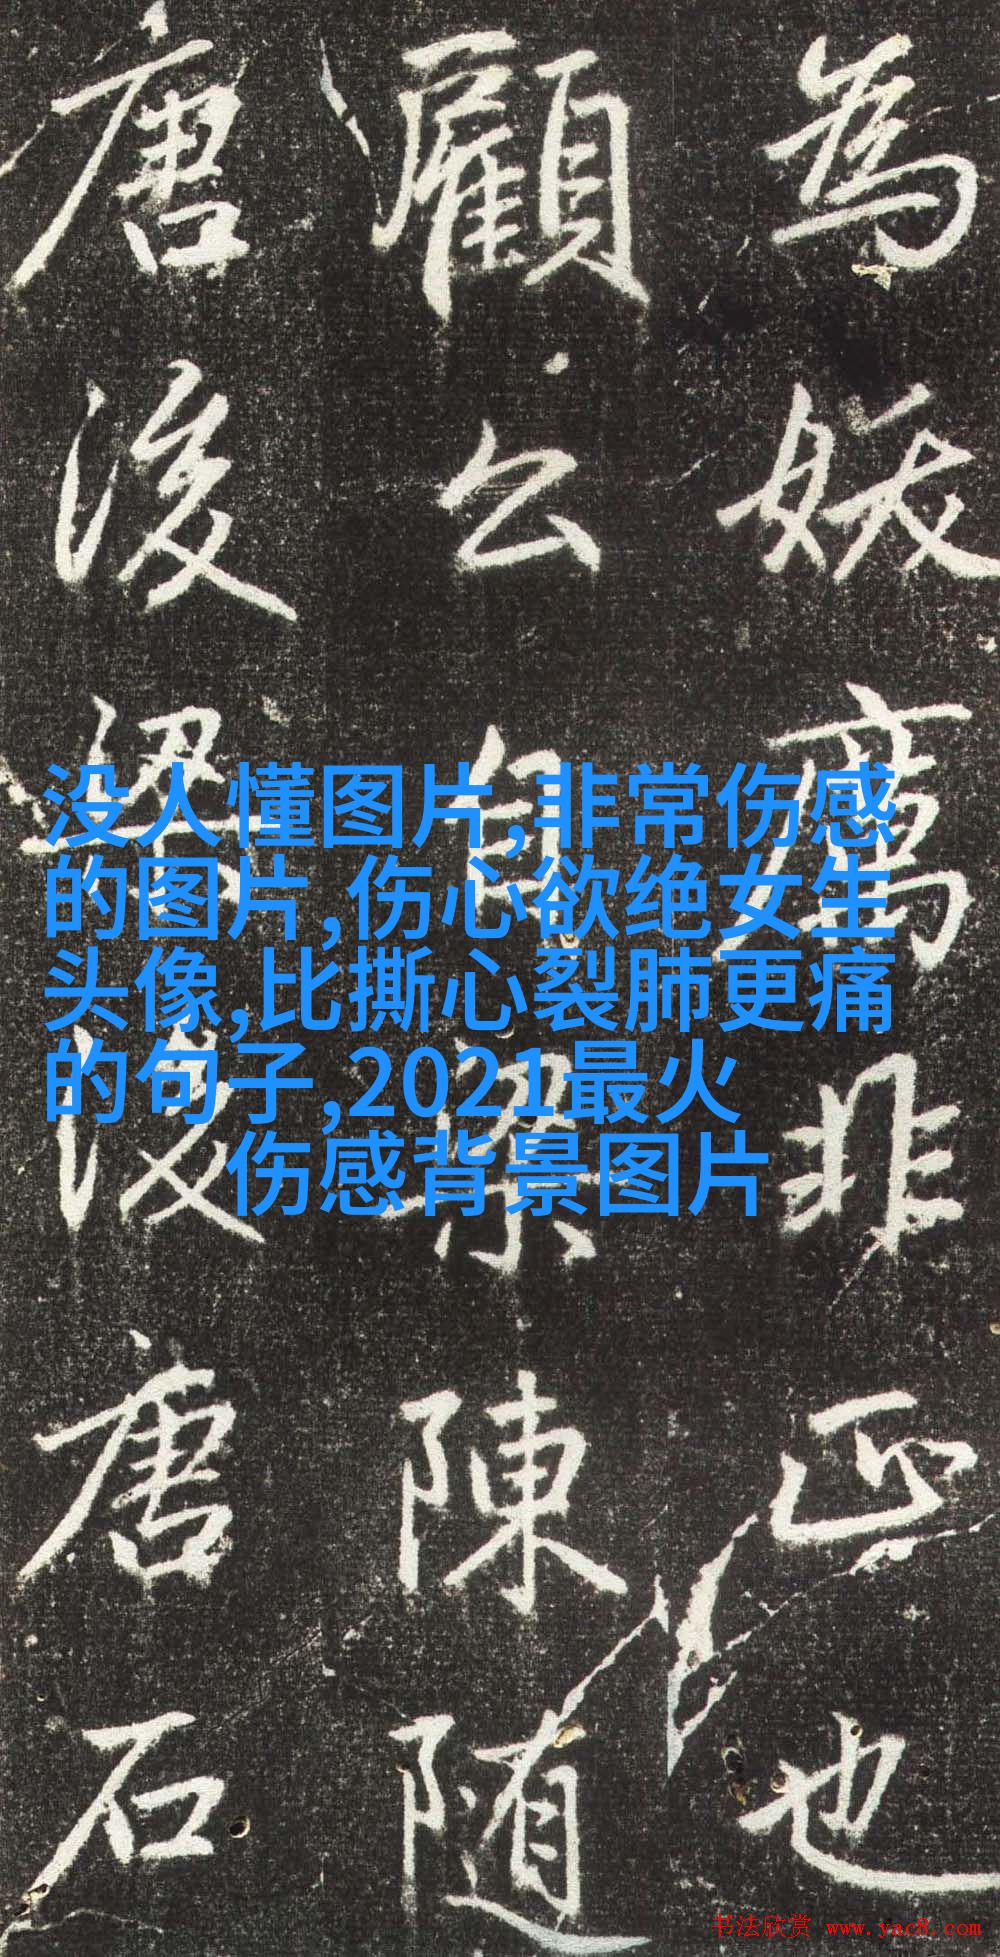 為妖厲非正也
顧公自梁陳隨
唐後梁後唐石
没人懂图片,非常伤感
的图片,伤心欲绝女生
头像,比撕心裂肺更痛
的句子,2021最火
伤感背景图片
书法欣赏 www.yac8.com